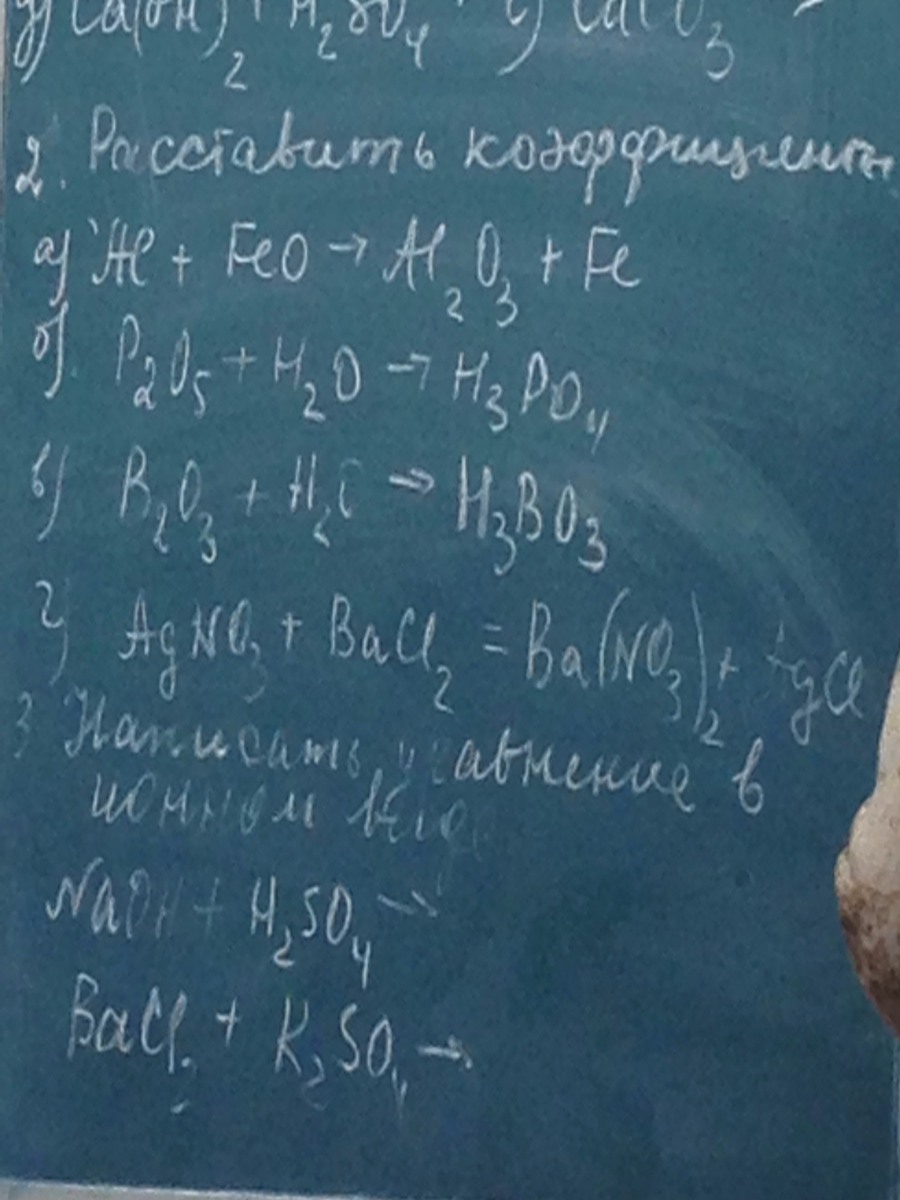 д) Ca(OH)₂ + H₂SO₄ е) CaCO₃
2. Расставить коэффициенты
а) Al + FeO → Al₂O₃ + Fe
б) P₂O₅ + H₂O → H₃PO₄
в) B₂O₃ + H₂O → H₃BO₃
г) AgNO₃ + BaCl₂ = Ba(NO₃)₂ + AgCl
3 Написать уравнение в
ионном виде
NaOH + H₂SO₄ →
BaCl₂ + K₂SO₄ →